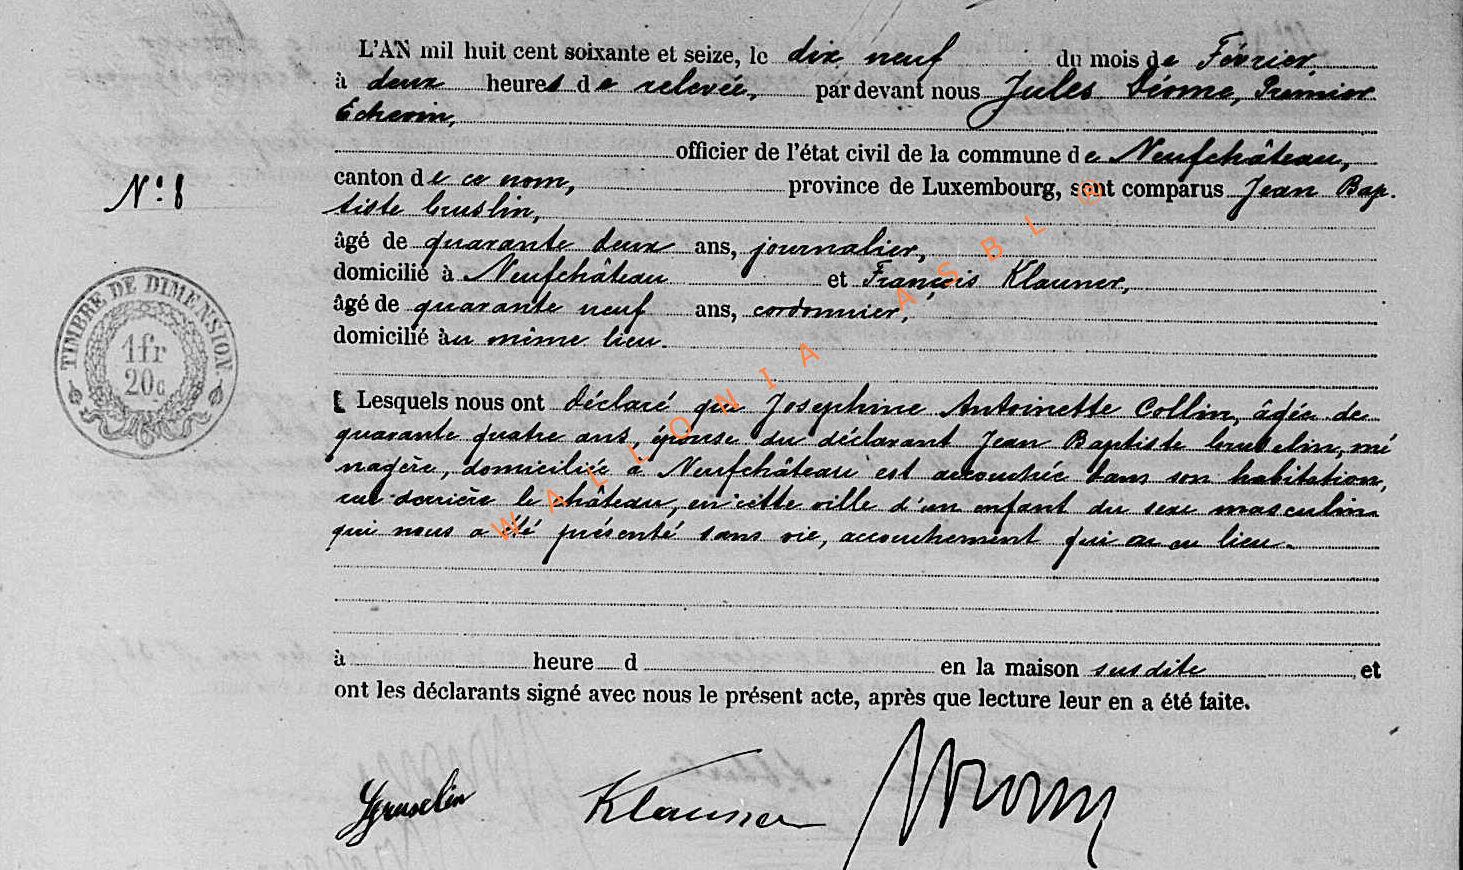 L'AN mil huit cent soixante et seize, le dix neuf du mois de Février,
à deux heures de relevée, par devant nous Jules Déome, Premier
Echevin,
officier de l'état civil de la commune de Neufchâteau,
N° 8
canton de ce nom, province de Luxembourg, sont comparus Jean Bap.
tiste Gruslin,
âgé de quarante deux ans, journalier,
domicilié à Neufchâteau et François Klauner,
âgé de quarante neuf ans, cordonnier,
domicilié au même lieu.
TIMBRE DE DIMENSION
1 fr
20c
Lesquels nous ont déclaré que Joséphine Antoinette Collin, âgée de
quarante quatre ans, épouse du déclarant Jean Baptiste Gruselin, mé
nagère, domiciliée à Neufchâteau est accouchée dans son habitation,
rue derrière le château, en cette ville d'un enfant du sexe masculin
qui nous a été présenté sans vie, accouchement qui a eu lieu.
à heure d en la maison susdite et
ont les déclarants signé avec nous le présent acte, après que lecture leur en a été faite.
Gruselin Klauner
WALLONIA ASBL ©